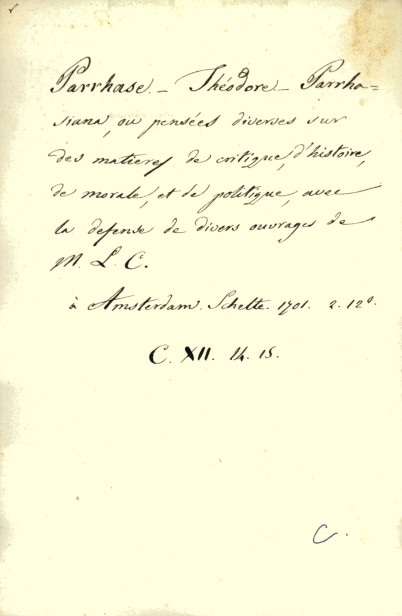 Parrhase. - Théodore - Parrha=
siana, ou pensées diverses sur
des matieres de critique, d'histoire,
de morale, et de politique, avec
la defense de divers ouvrages de
M. L. C.
à Amsterdam. Schelte. 1701. 2. 12°.
C. XII. 14. 15.
C.